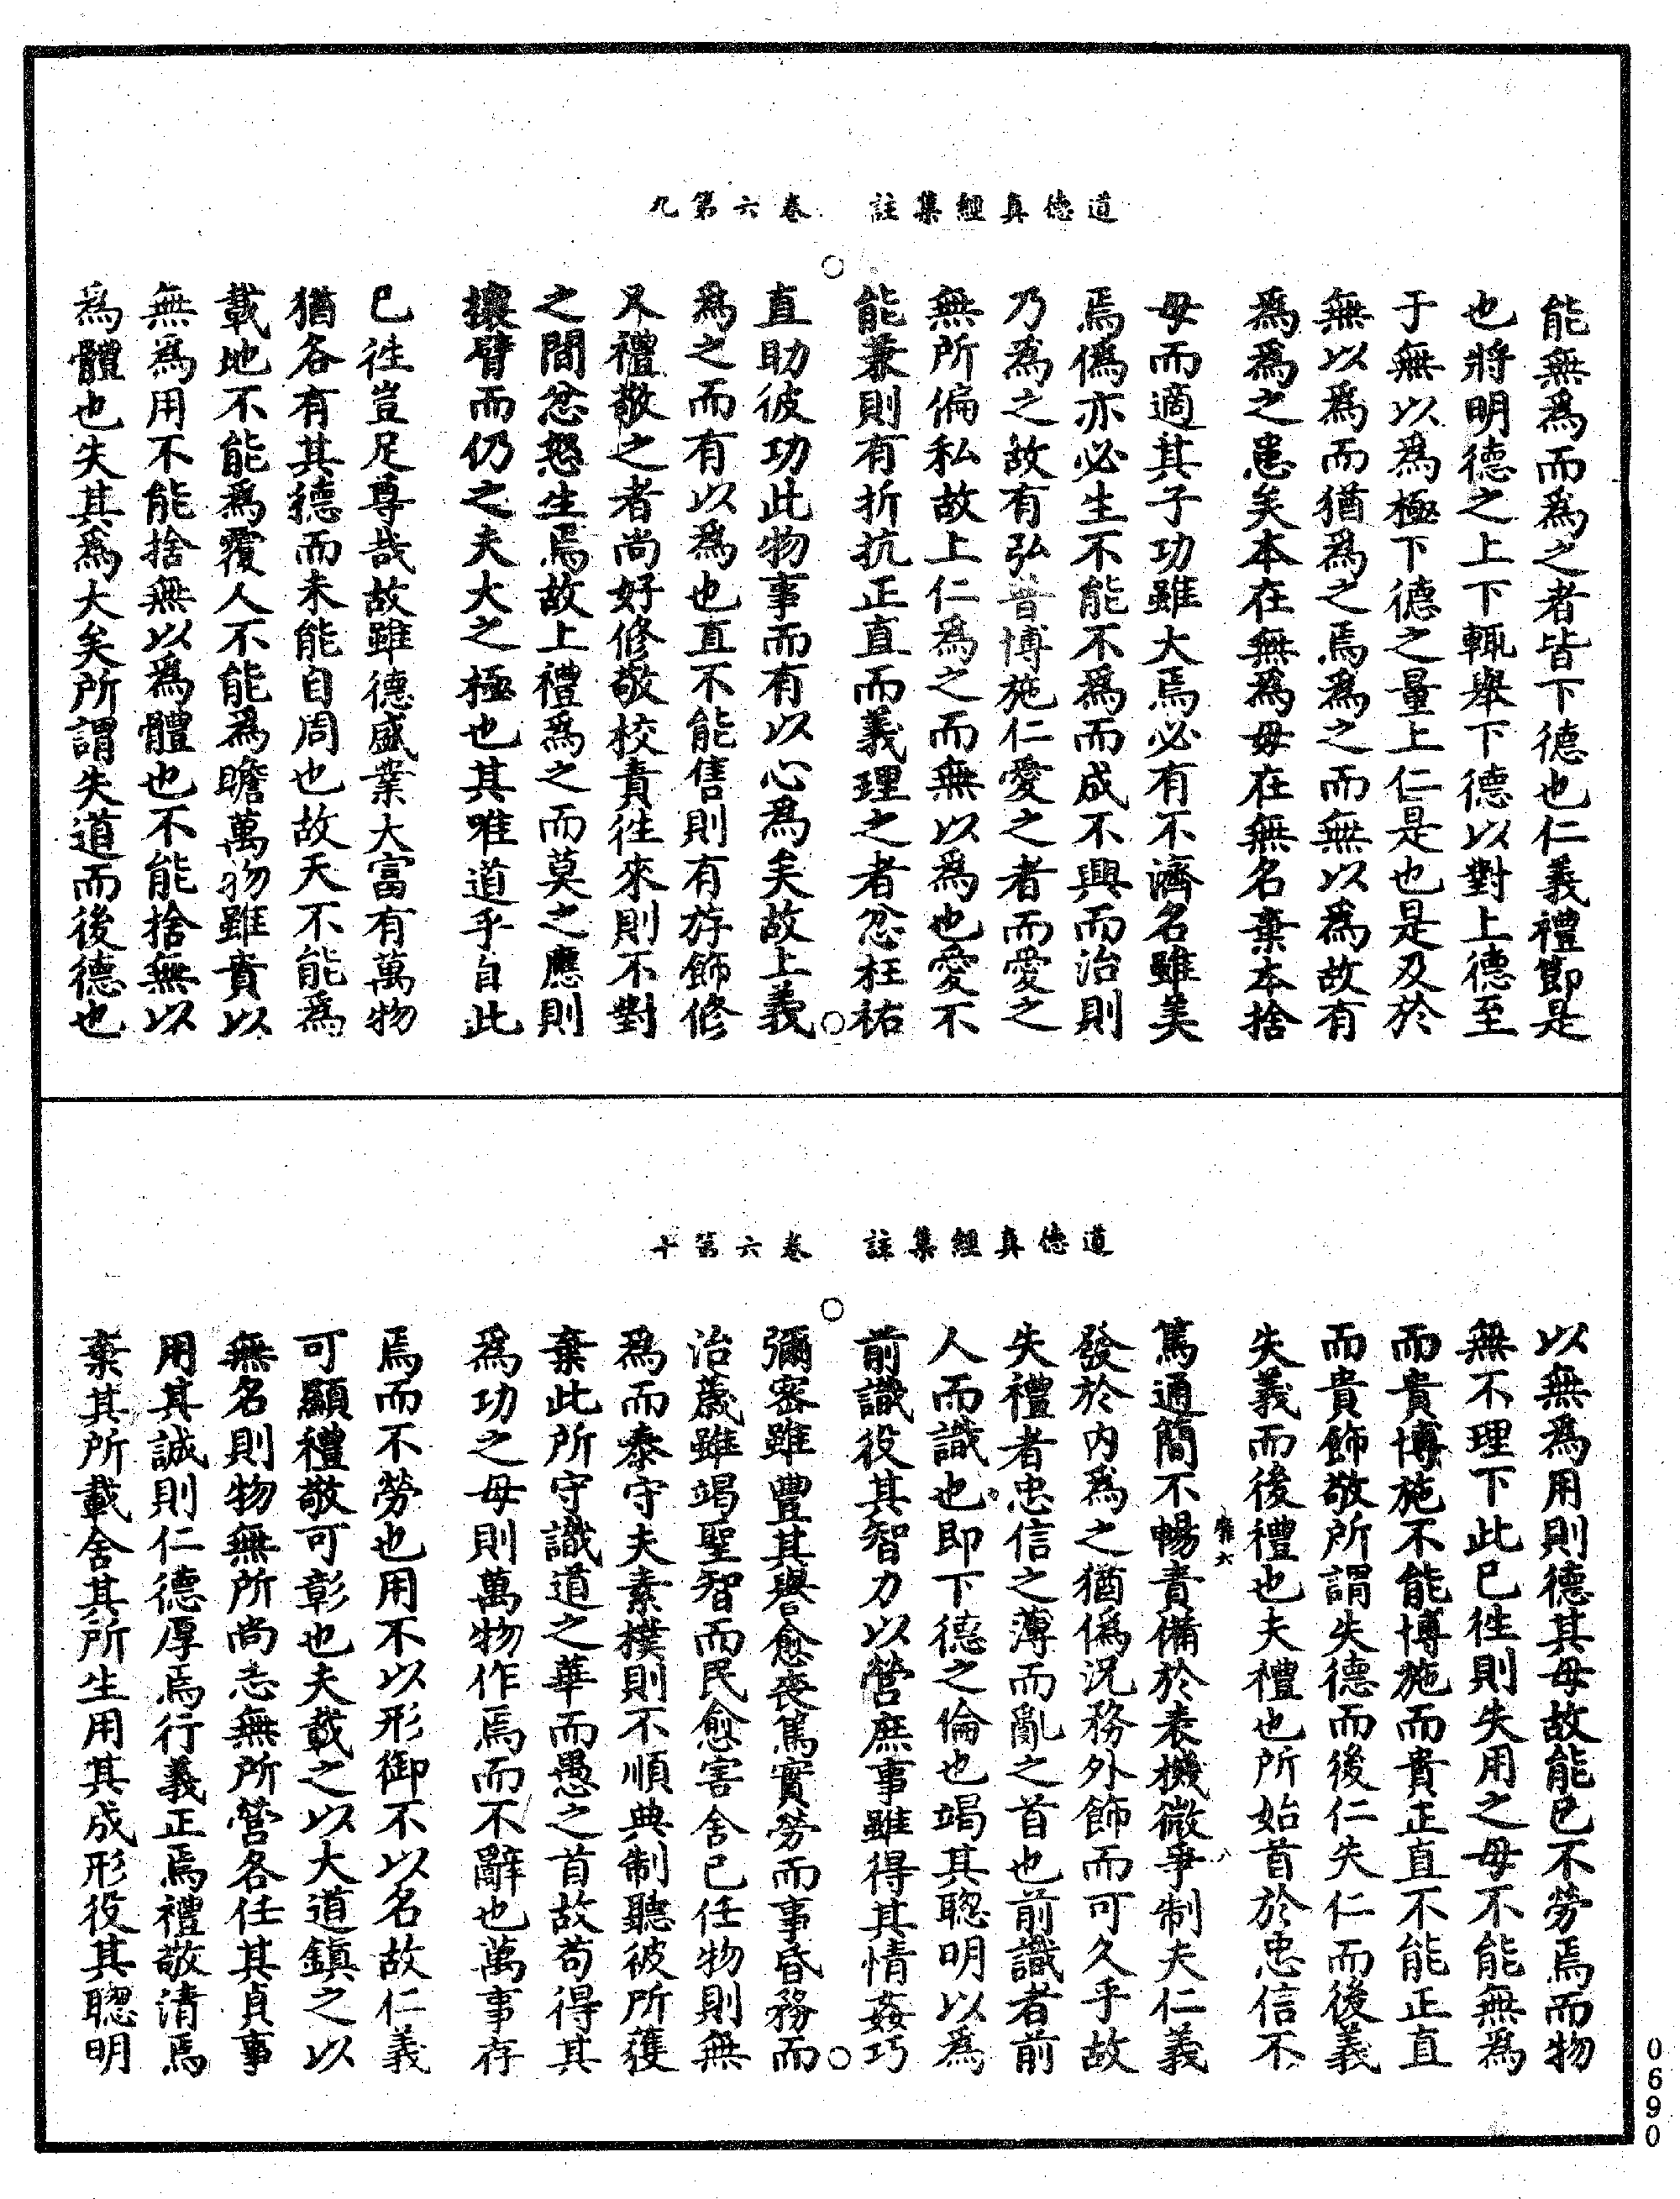 道德真經集註 卷六第九
能無爲而爲之者皆下德也仁義禮節是
也將明德之上下輒舉下德以對上德至
于無以爲極下德之量上仁是也是及於
無以爲而猶爲之焉爲之而無以爲故有
爲爲之患矣本在無爲母在無名棄本捨
母而適其子功雖大焉必有不濟名雖美
焉僞亦必生不能不爲而成不興而治則
乃爲之故有弘普博施仁愛之者而愛之
無所偏私故上仁爲之而無以爲也愛不
能兼則有折抗正直而義理之者忿枉祐
直助彼攻此物事而有以心爲矣故上義
爲之而有以爲也直不能售則有游飾修
文禮敬之者尚好修敬校責徃來則不對
之間忿怒生焉故上禮爲之而莫之應則
攘臂而仍之夫大之極也其唯道乎自此
已徃豈足尊哉故雖德盛業大富有萬物
猶各有其德而未能自周也故天不能爲
載地不能爲覆人不能爲贍萬物雖貴以
無爲用不能捨無以爲體也不能捨無以
爲體也失其爲大矣所謂失道而後德也
道德真經集註 卷六第十
以無爲用則德其母故能已不勞焉而物
無不理下此已徃則失用之母不能無爲
而貴博施不能博施而貴正直不能正直
而貴飾敬所謂失德而後仁失仁而後義
失義而後禮也夫禮也所始首於忠信不
篤通簡不暢責備於表機微爭制夫仁義
發於内爲之猶僞況務外飾而可久乎故
失禮者忠信之薄而亂之首也前識者前
人而識也即下德之倫也竭其聰明以爲
前識役其智力以營庶事雖得其情姦巧
彌密雖豐其譽愈喪篤實勞而事昏務而
治薉雖竭聖智而民愈害舍己任物則無
爲而泰守夫素樸則不順典制聽彼所獲
棄此所守識道之華而愚之首故苟得其
爲功之母則萬物作焉而不辭也萬事存
焉而不勞也用不以形御不以名故仁義
可顯禮敬可彰也夫載之以大道鎮之以
無名則物無所尚志無所營各任其貞事
用其誠則仁德厚焉行義正焉禮敬清焉
棄其所載舍其所生用其成形役其聰明
0690